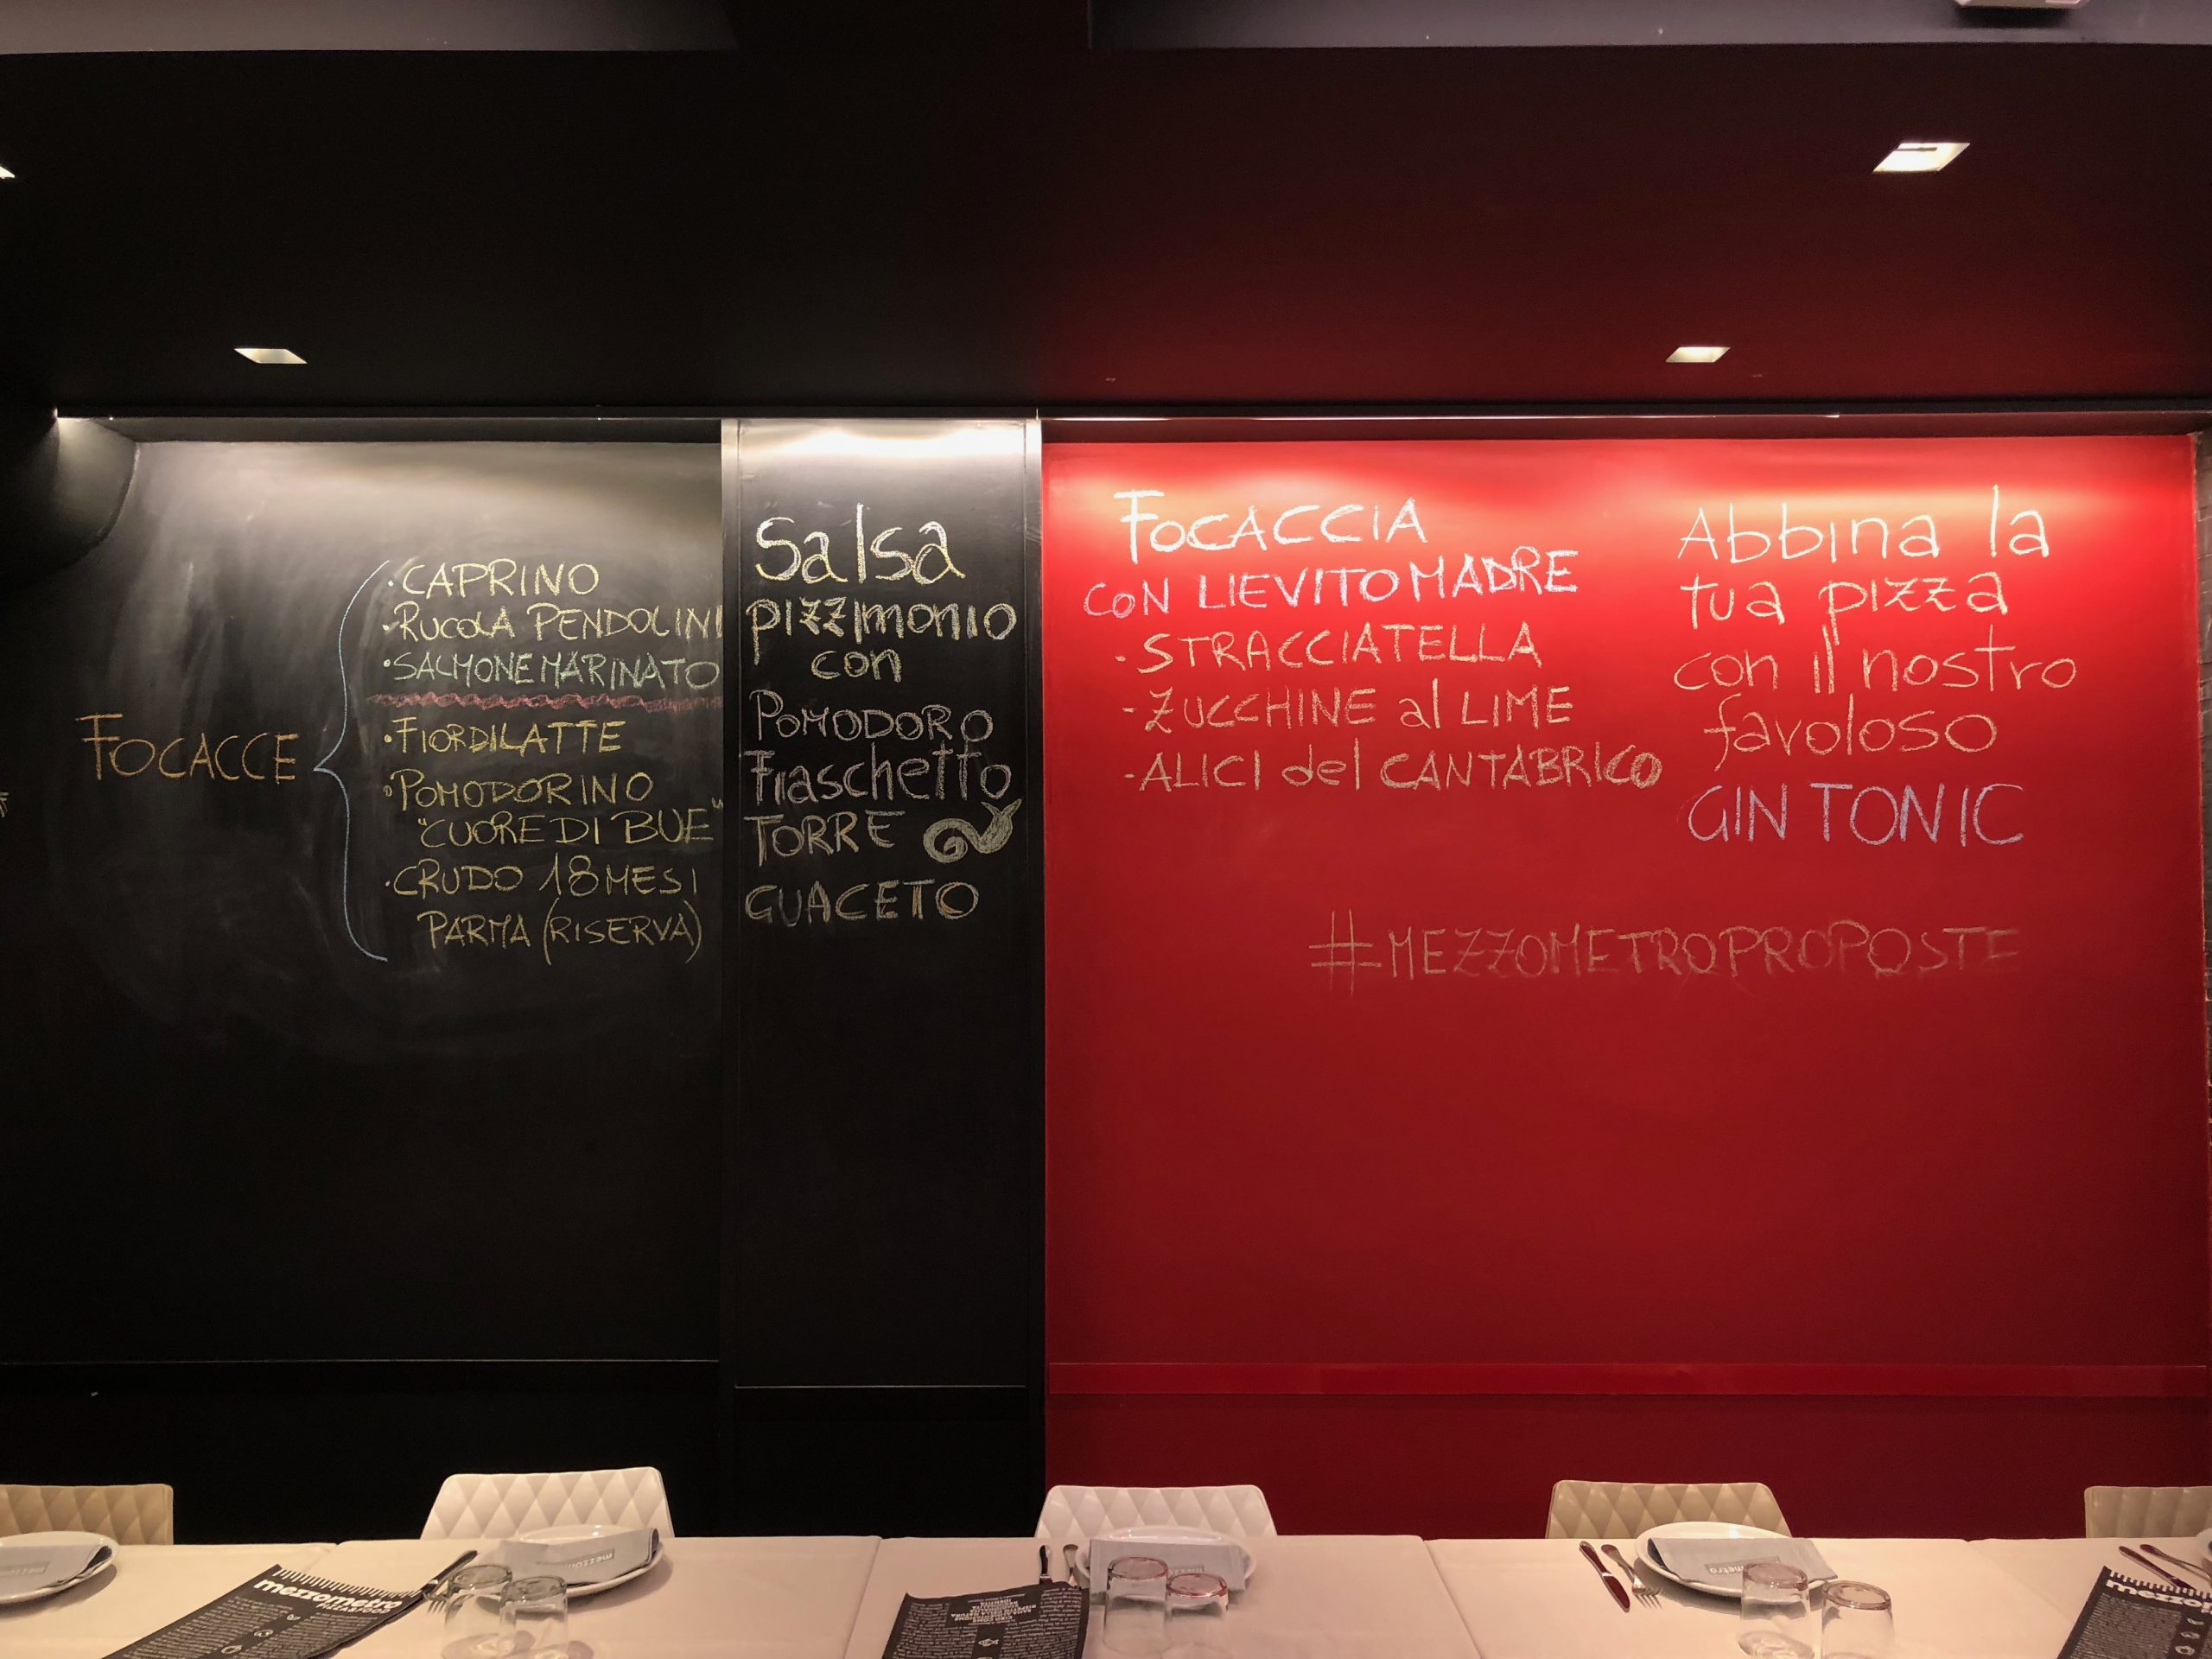 FOCACCE
·CAPRINO
·RUCOLA PENDOLINI
·SALMONE MARINATO
·FIORDILATTE
·POMODORINO
"CUORE DI BUE"
·CRUDO 18 MESI
PARMA (RISERVA)
Salsa
pizzimonio
con
POMODORO
Fiaschetto
TORRE
GUACETO
FOCACCIA
CON LIEVITO MADRE
-STRACCIATELLA
-ZUCCHINE al LIME
-ALICI del CANTABRICO
Abbina la
tua pizza
con il nostro
favoloso
GIN TONIC
#MEZZOMETROPROPOSTE
mezzometro
PIZZA&FOOD
mezzometro